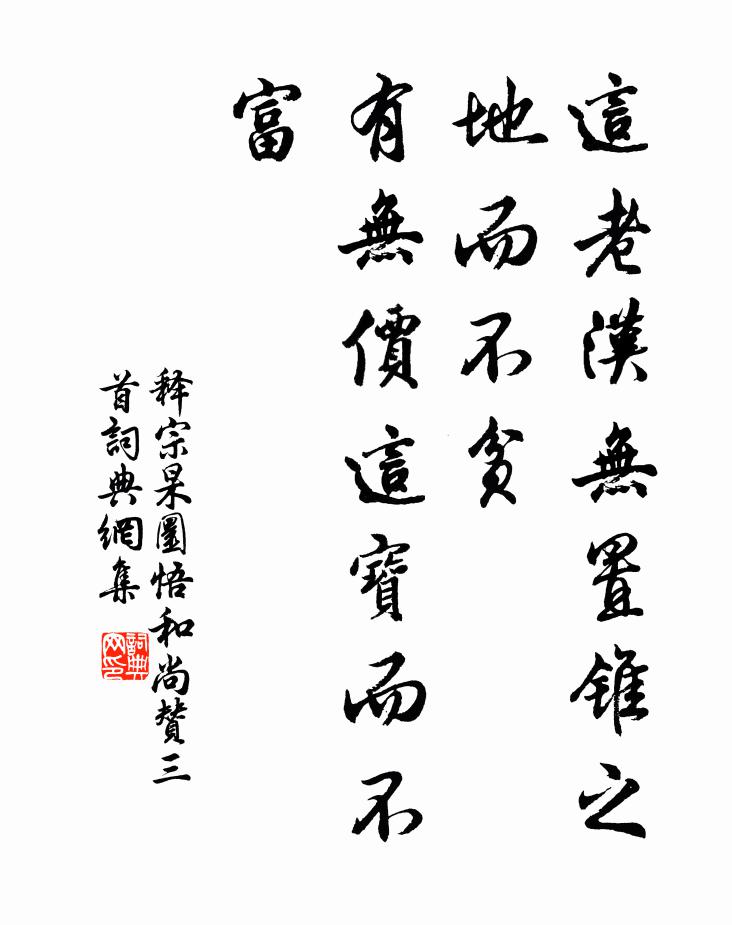 這老漢無置錐之
地而不貧
有無價這寶而不
富
释宗杲圜悟和尚贊三
首詞典網集
詞典
网印